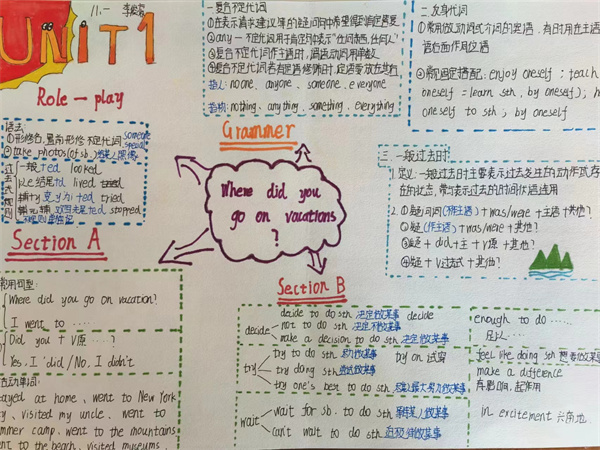 11.一
UNIT 1
Role-play
语法
①形修名,置前;形修不定代词 someone special
②take photos (of sb.)
一般+ed looked
以e结尾+d lived
辅+y 变y为i+ed tried
stopped
Section A
常用句型:
Where did you go on vacation?
I went to ……
Did you + V原 ……?
Yes, I did / No, I didn't
stayed at home、went to New York
visited my uncle、went to
summer camp、went to the mountains
went to the beach、visited museums、
一.复合不定代词
①在表示请求建议等的疑问句中希望得到肯定答复
②any一不定代词用于肯定句中表示"任何东西,任何人"
③复合不定代词作主语时,谓语动词用单数
④复合不定代词若有定语修饰时,定语要放在其后
指人: no one、anyone、someone、everyone
指物: nothing、anything、something、everything
Grammer
Where did you
go on vacations
?
二.反身代词
①常用做动词或介词的宾语,有时用在主语
②常用固定搭配: enjoy oneself ; teach
oneself = learn sth. by oneself; h
oneself to sth ; by oneself
三.一般过去时
1.定义:一般过去时主要表示过去发生的动作或存
在的状态,常与表过去的时间状语连用
2.①疑问词(作主语)+was/were+主语+其他?
②疑(作主语)+was/were+其他?
③疑+did+主+V原+其他?
④疑+V过去式+其他?
Section B
decide to do sth 决定做某事 decide
decide not to do sth 决定不做某事
make a decision to do sth 决定做某事
try to do sth 尽力做某事 try on 试穿
try try doing sth 尝试做某事
try one's best to do sth 尽最大努力做某事
wait wait for sb. to do sth 等待某人做某事
can't wait to do sth 迫不及待做某事
enough to do ……
足以…
feel like doing sth 想要做某事
make a difference
有影响,起作用
in excitement